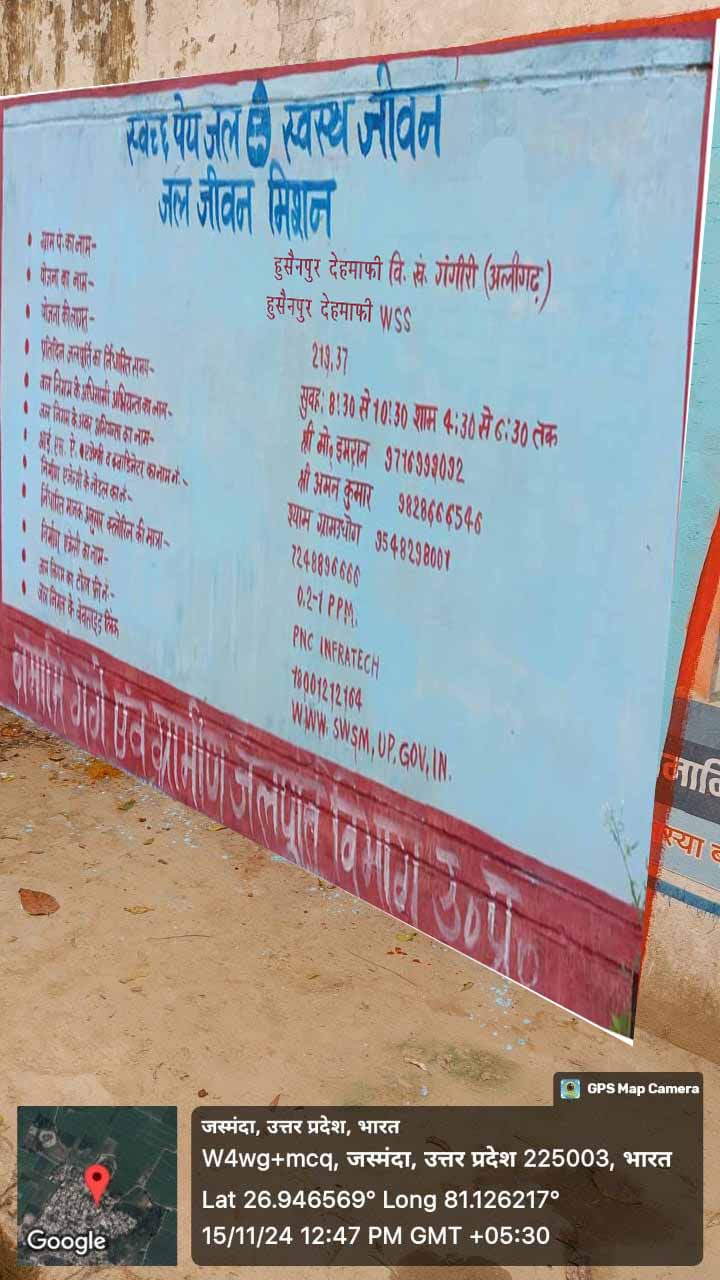 स्वच्छ पेय जल से स्वस्थ जीवन
जल जीवन मिशन
• ग्राम पं. का नाम- हुसैनपुर देहमाफी वि. खं. गंगीरी (अलीगढ़)
• योजना का नाम- हुसैनपुर देहमाफी WSS
• योजना की लागत- 219.37
• प्रतिदिन जलापूर्ति का निर्धारित समय- सुवह: 8:30 से 10:30 शाम 4:30 से 6:30 तक
• जल निगम के अधिशासी अभियन्ता का नाम- श्री मो० इमरान 9716999092
• जल निगम के अवर अभियन्ता का नाम- श्री अमन कुमार 9828666546
• आई. एस. ए. एजेन्सी व कवार्डिनेटर का नाम नं.- श्याम ग्रामउधोग 9548298001
• निर्माण एजेन्सी के नोडल का नं.- 7248896666
• निर्धारित मानक अनुसार क्लोरीन की मात्रा- 0.2-1 PPM.
• निर्माण एजेन्सी का नाम- PNC INFRATECH
• जल निगम का टोल फ्री नं:- 18001212164
• जल निगम के वेबसाइड लिंक WWW.SWSM,UP.GOV,IN.
नमामि गंगे एवं ग्रामीण जलपूर्ति विभाग उ०प्र०
स्या
GPS Map Camera
जस्मंदा, उत्तर प्रदेश, भारत
W4wg+mcq, जस्मंदा, उत्तर प्रदेश 225003, भारत
Lat 26.946569° Long 81.126217°
15/11/24 12:47 PM GMT +05:30
Google